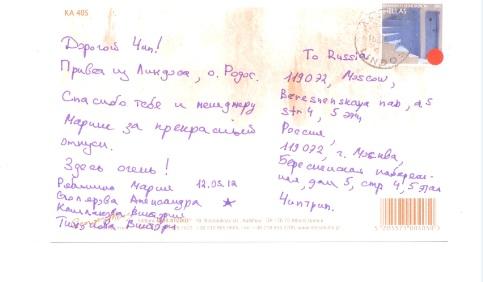 KA 405
HELLAS
Дорогой Чип!
Привет из Линдоса, о. Родос.
Спасибо тебе и менеджеру
Марине за прекрасный
отпуск.
Здесь очень!
Мария 12.05.12
Столярова Александра
Виктория
Виктория
To Russia
119072, Moscow,
Bersenevskaya nab, d.5
str 4, 5 эт,
Россия,
119072, г. Москва,
Береснейская набереж-
ная, дом 5, стр 4, 5 этаж
Чиптрип.